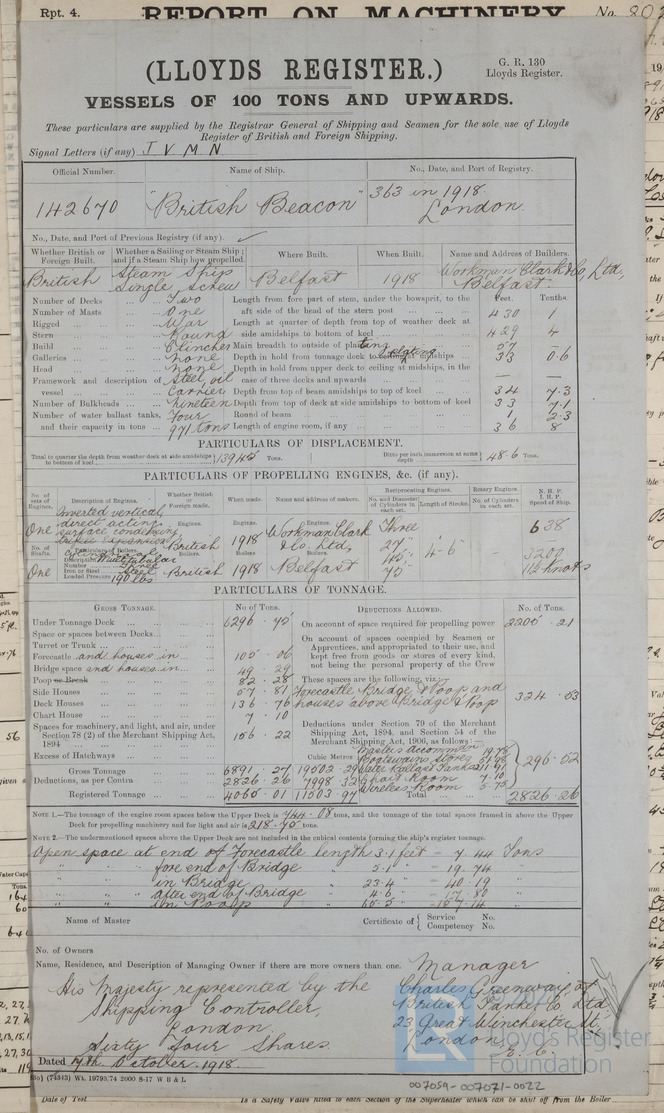 Rpt. 4. REPORT ON MACHINERY No.
(LLOYDS REGISTER.)
G. R. 130
Lloyds Register.
VESSELS OF 100 TONS AND UPWARDS.
These particulars are supplied by the Registrar General of Shipping and Seamen for the sole use of Lloyds
Register of British and Foreign Shipping.
Signal Letters (if any) J V M N
Official Number. Name of Ship. No., Date, and Port of Registry.
142670 "British Beacon" 363 in 1918 London.
No., Date, and Port of Previous Registry (if any).
Whether British or Foreign Built. Whether a Sailing or Steam Ship; and if a Steam Ship how propelled. Where Built. When Built. Name and Address of Builders.
British Steam Ship Single Screw Belfast 1918 Workman Clark & Co, Ltd, Belfast.
Feet. Tenths.
Number of Decks Two Length from fore part of stem, under the bowsprit, to the
Number of Masts One aft side of the head of the stern post 430 1
Rigged Length at quarter of depth from top of weather deck at
Stern Round side amidships to bottom of keel 429 4
Build Clincher Main breadth to outside of plating 57
Galleries none Depth in hold from tonnage deck to ceiling at midships 33 0.6
Head none Depth in hold from upper deck to ceiling at midships, in the
Framework and description of vessel Steel, oil carrier case of three decks and upwards — —
Depth from top of beam amidships to top of keel 34 7.3
Number of Bulkheads nineteen Depth from top of deck at side amidships to bottom of keel 33 7.1
Number of water ballast tanks, Four Round of beam 1 2.3
and their capacity in tons 971 tons Length of engine room, if any 36 8
PARTICULARS OF DISPLACEMENT.
Total to quarter the depth from weather deck at side amidships to bottom of keel Tons. Ditto per inch immersion at same depth 48.6 Tons.
PARTICULARS OF PROPELLING ENGINES, &c. (if any).
No. of sets of Engines. Description of Engines. Whether British or Foreign made. When made. Name and address of makers. Reciprocating Engines. Rotary Engines. N. H. P. I. H. P. Speed of Ship.
No. and Diameter of Cylinders in each set. Length of Stroke. No. of Cylinders in each set.
One Inverted vertical direct acting surface condensing triple expansion Engines. British Engines. 1918 Workman Clark & Co. Ltd, Belfast Three 27" 75" 4'-6" — 638
No. of Shafts. Particulars of Boilers. Description Multitubular Number Three Iron or Steel Steel Loaded Pressure 190 lbs
One Boilers. British Boilers 1918 3200
PARTICULARS OF TONNAGE.
GROSS TONNAGE. No of Tons. DEDUCTIONS ALLOWED. No. of Tons.
Under Tonnage Deck 6296 .72 On account of space required for propelling power 2205 .21
Space or spaces between Decks On account of spaces occupied by Seamen or
Turret or Trunk Apprentices, and appropriated to their use, and
Forecastle and houses in 105 .06 kept free from goods or stores of every kind,
Bridge space and houses in 49 .29 not being the personal property of the Crew
Poop or Break 82 .28 These spaces are the following, viz:—
Side Houses 57 .81 Forecastle Bridge & Poop and 324 .53
Deck Houses 136 .76 houses above Bridge & Poop
Chart House 7 .10
Spaces for machinery, and light, and air, under Section 78 (2) of the Merchant Shipping Act, 1894 156 .22 Deductions under Section 79 of the Merchant Shipping Act, 1894, and Section 54 of the Merchant Shipping Act, 1906, as follows:—
Excess of Hatchways Cubic Metres.
Masters accommn 19.78
Boatswains stores
Water Ballast Tanks
Chart Room 7.10
Wireless Room 5.75
296 .52
Gross Tonnage 6891 .27 19502 .29
Deductions, as per Contra 2826 .26 7998 .32
Registered Tonnage 4065 .01 11503 .97 Total 2826 .26
NOTE 1.—The tonnage of the engine room spaces below the Upper Deck is 744.08 tons, and the tonnage of the total spaces framed in above the Upper
Deck for propelling machinery and for light and air is 218.75 tons.
NOTE 2.—The undermentioned spaces above the Upper Deck are not included in the cubical contents forming the ship's register tonnage.
Open space at end of Forecastle length 3.1 feet = 7.44 Tons
" " " fore end of Bridge " 5.1 " = 19.74 "
" " " in Bridge " 23.4 "
" " " after end of Bridge " 4.6 " = 17.80 "
" " " in Poop "
Name of Master Certificate of { Service No. Competency No.
No. of Owners
Name, Residence, and Description of Managing Owner if there are more owners than one. Manager
His Majesty represented by the Charles Greenway of
Shipping Controller, British Tanker Co Ltd
London. 23 Great Winchester St,
Sixty Four Shares. London, E. C.
Dated 7th October 1918.
(74343) Wt. 19793/74 2000 8-17 W B & L
© 2021
LR
Lloyd's Register
Foundation
007059-007071-0022
Date of Test Is a Safety Valve fitted to each Section of the Superheater which can be shut off from the Boiler